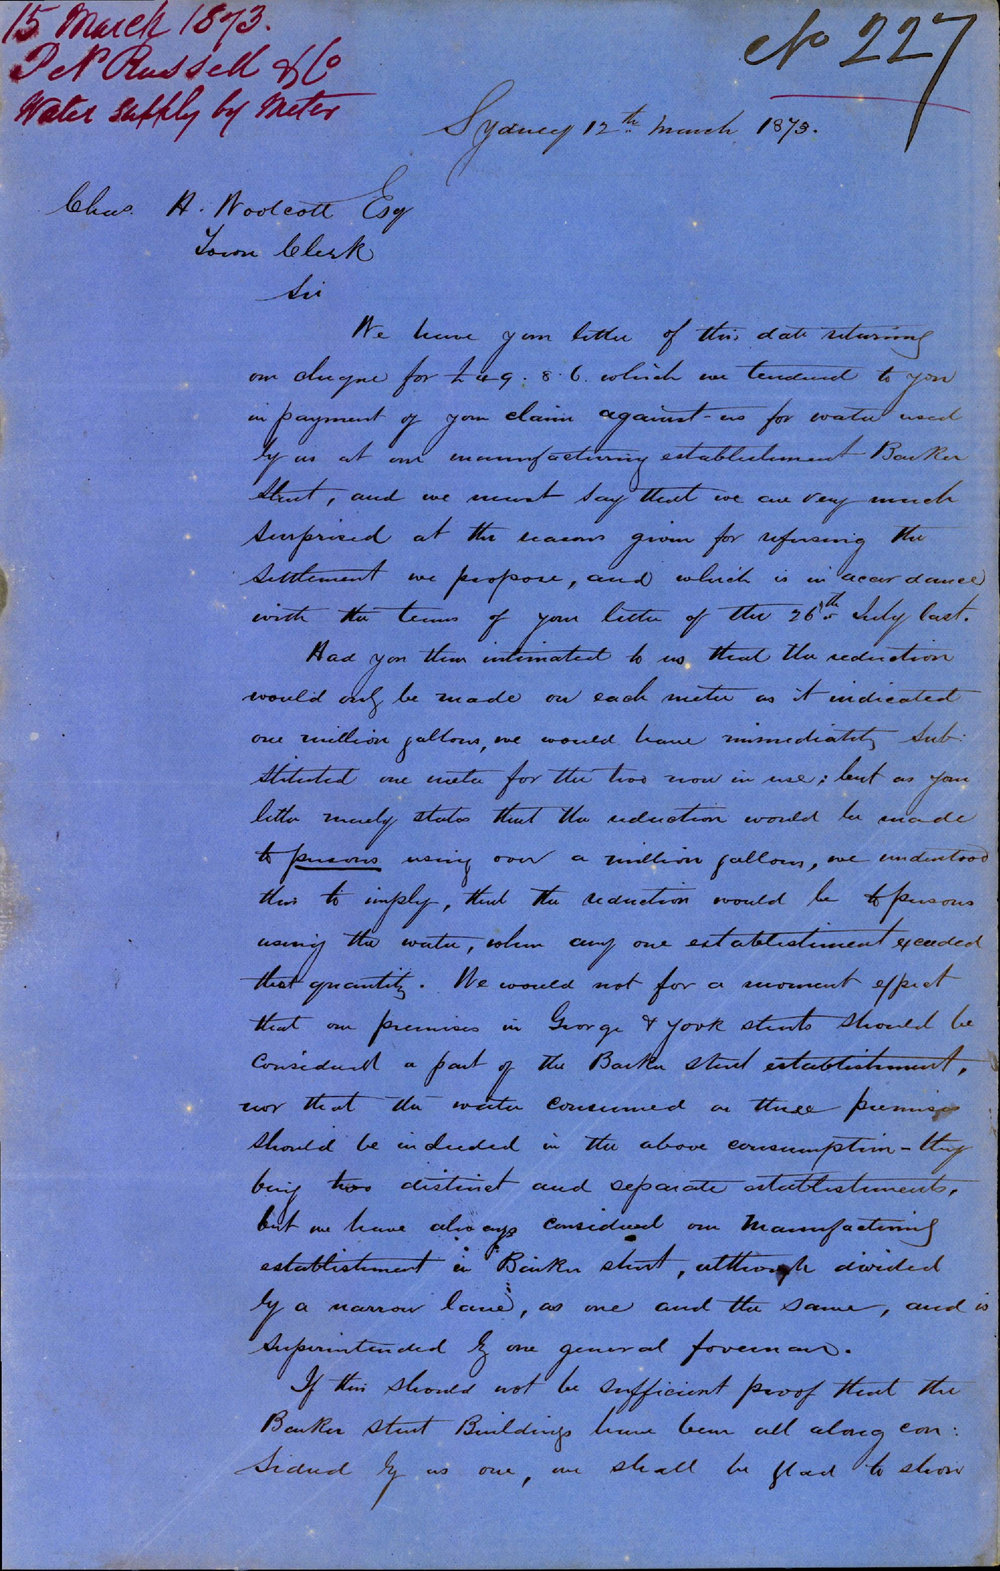 15 March 1873.
P N Russell & Co
Water supply by Meter
No 227
Sydney 12th March 1873.
Chas. H. Woolcott Esq
Town Clerk
Sir
We have your letter of this date returning
our cheque for £49. 8. 6. which we tendered to you
in payment of your claim against us for water used
by us at our manufacturing establishment Barker
Street, and we must say that we are very much
surprised at the reasons given for refusing the
settlement we propose, and which is in accordance
with the terms of your letter of the 26th July last.
Had you then intimated to us that the reduction
would only be made on each meter as it indicated
one million gallons, we would have immediately sub:
stituted one meter for the two now in use; but as your
letter merely states that the reduction would be made
to persons using over a million gallons, we understood
this to imply, that the reduction would be to persons
using the water, when any one establishment exceeded
that quantity. We would not for a moment expect
that our premises in George & York streets should be
considered a part of the Barker street establishment,
nor that the water consumed on these premises
should be included in the above consumption - they
being two distinct and separate establishments,
but we have always considered our Manufacturing
establishment in Barker street, although divided
by a narrow lane, as one and the same, and is
superintended by one general foreman.
If this should not be sufficient proof that the
Barker street Buildings have been all along con:
sidered by us one, we shall be glad to show